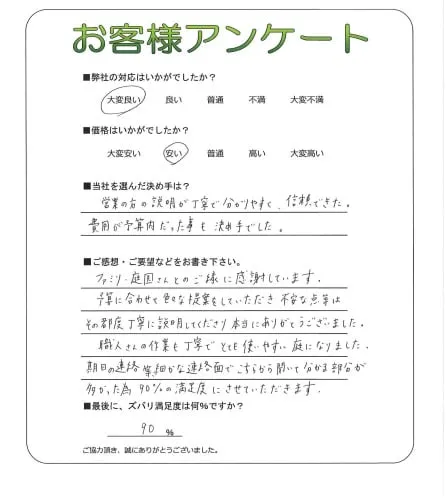 お客様アンケート
■弊社の対応はいかがでしたか？
大変良い 良い 普通 不満 大変不満
■価格はいかがでしたか？
大変安い 安い 普通 高い 大変高い
■当社を選んだ決め手は？
営業の方の説明が丁寧で分かりやすく、信頼できた。
費用が予算内だった事も決め手でした。
■ご感想・ご要望などをお書き下さい。
ファミリー庭園さんとのご縁に感謝しています。
予算に合わせて色々な提案をしていただき 不安な点等は
その都度丁寧に説明してくださり本当にありがとうございました。
職人さんの作業も丁寧でとても使いやすい庭になりました。
期日の連絡等細かな連絡面でこちらから聞いて分かる部分が
多かった為90%の満足度にさせていただきます。
■最後に、ズバリ満足度は何%ですか？
90 %
ご協力頂き、誠にありがとうございました。